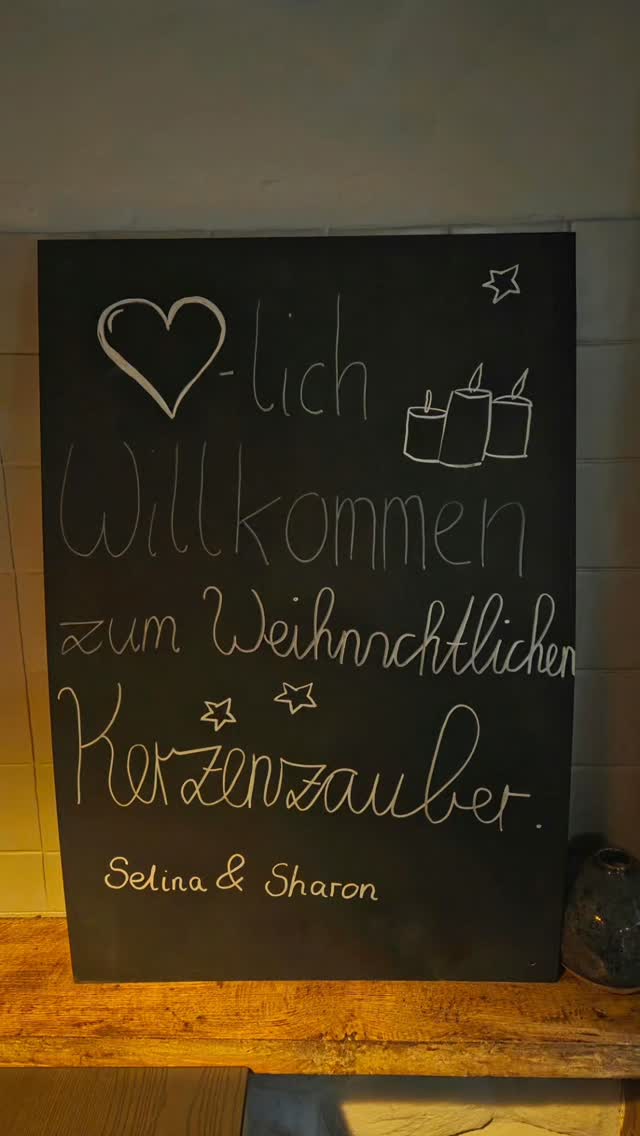 ♡-lich
Willkommen
zum Weihnachtlichen
Kerzenzauber.
Selina & Sharon